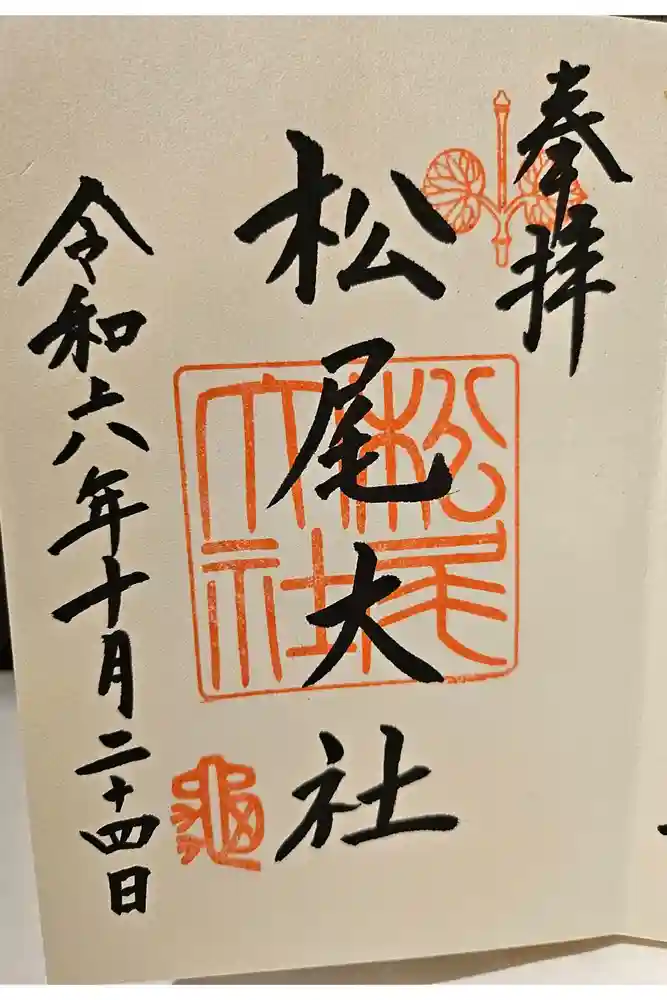 奉拝
松尾大社
松尾大社
龜
令和六年十月二十四日